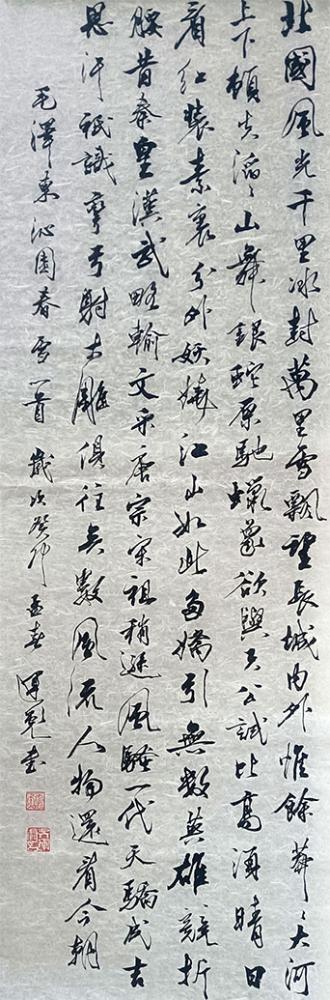 北國風光千里冰封萬里雪飄望長城內外惟餘莽〻大河
上下頓失滔〻山舞銀蛇原馳蠟象欲與天公試比高須晴日
看紅裝素裹分外妖嬈江山如此多嬌引無數英雄競折
腰昔秦皇漢武略輸文采唐宗宋祖稍遜風騷一代天驕成吉
思汗祇識彎弓射大雕俱往矣數風流人物還看今朝
毛澤東沁園春雪一首歲次癸卯孟春